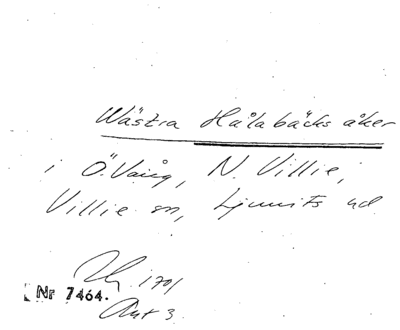 Wästra Hålabäcks åker
i Ö. Vång, N. Villie,
Villie sn, Ljunits hd
1701
Nr 7464.
Akt 3.